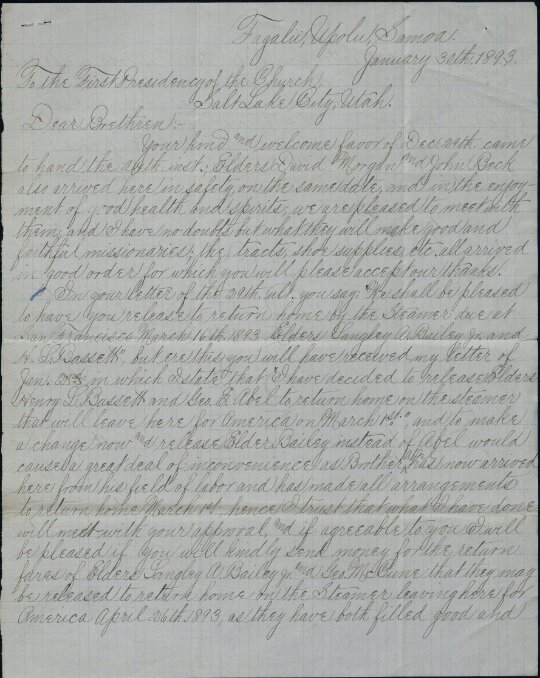 Fagalii, Upolu, Samoa.
January 30th. 1893.
To the First Presidency of the Church,
Salt Lake City, Utah.
Dear Brethren:-
Your kind and welcome favor of Dec. 29th. came
to hand the 24th. inst.; Elders David Morgan and John Beck
also arrived here in safety on the same date, and in the enjoy-
ment of good health and spirits; we are pleased to meet with
them, and I have no doubts but what they will make good and
faithful missionaries; the tracts, shoe supplies, etc. all arrived
in good order for which you will please accept our thanks.
In your letter of the 29th. ult. you say: "We shall be pleased
to have you release to return home by the Steamer due at
San Francisco March 16th. 1893 Elders Langley A. Bailey jr. and
H. L. Bassett" but ere this you will have received my letter of
Jan. in which I state that "I have decided to release Elders
Henry L. Bassett and Geo. E. Abel to return home on the steamer
that will leave here for America on March 1st." and to make
a change now and release Elder Bailey instead of Abel would
cause a great deal of inconvenience as Brother has now arrived
here from his field of labor and has made all arrangements
to return home March 1st. hence I trust that what I have done
will meet with your approval, and if agreeable to you I will
be pleased if you will kindly send money for the return
fares of Elders Langley A. Bailey jr. and Geo. McCune that they may
be released to return home on the Steamer leaving here for
America April 26th. 1893, as they have both filled good and